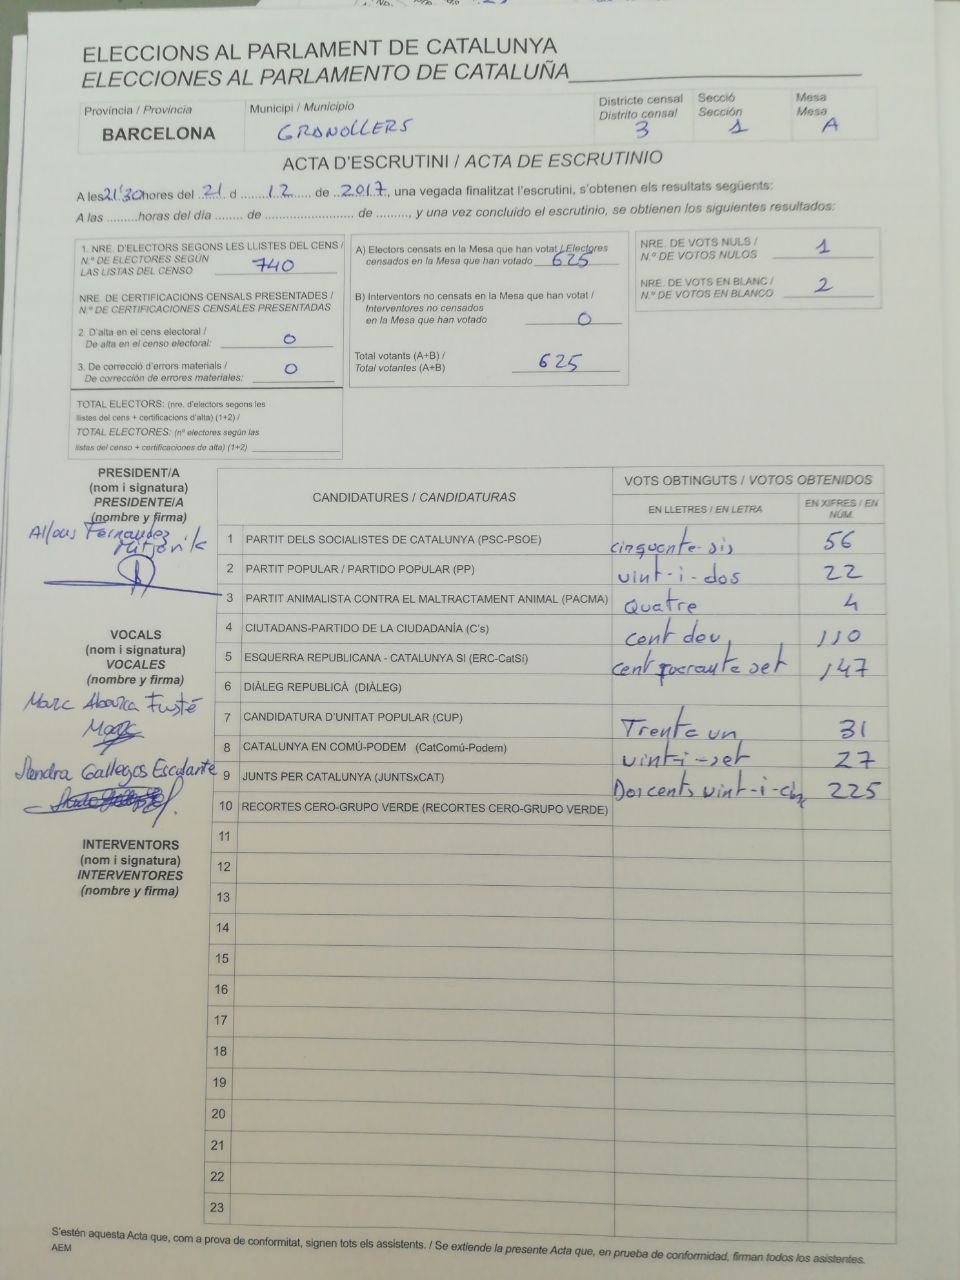 ELECCIONS AL PARLAMENT DE CATALUNYA
ELECCIONES AL PARLAMENTO DE CATALUÑA
Província / Provincia
BARCELONA
Municipi / Municipio
GRANOLLERS
Districte censal
Distrito censal
3
Secció
Sección
1
Mesa
Mesa
A
ACTA D'ESCRUTINI / ACTA DE ESCRUTINIO
A les 21'30 hores del 21 d 12 de 2017, una vegada finalitzat l'escrutini, s'obtenen els resultats següents:
A las .........horas del día ........ de .......................... de .........., y una vez concluido el escrutinio, se obtienen los siguientes resultados:
1. NRE. D'ELECTORS SEGONS LES LLISTES DEL CENS /
N.º DE ELECTORES SEGÚN
LAS LISTAS DEL CENSO 740
NRE. DE CERTIFICACIONS CENSALS PRESENTADES /
N.º DE CERTIFICACIONES CENSALES PRESENTADAS
2. D'alta en el cens electoral /
De alta en el censo electoral: 0
3. De correcció d'errors materials /
De corrección de errores materiales: 0
TOTAL ELECTORS: (nre. d'electors segons les
llistes del cens + certificacions d'alta) (1+2) /
TOTAL ELECTORES: (nº electores según las
listas del censo + certificaciones de alta) (1+2)
A) Electors censats en la Mesa que han votat / Electores
censados en la Mesa que han votado 625
B) Interventors no censats en la Mesa que han votat /
Interventores no censados
en la Mesa que han votado 0
Total votants (A+B) /
Total votantes (A+B) 625
NRE. DE VOTS NULS /
N.º DE VOTOS NULOS 1
NRE. DE VOTS EN BLANC /
N.º DE VOTOS EN BLANCO 2
PRESIDENT/A
(nom i signatura)
PRESIDENTE/A
(nombre y firma)
Alfons Fernandez
VOCALS
(nom i signatura)
VOCALES
(nombre y firma)
Marc Abarca Fusté
Marc
Sandra Gallegos Escolante
INTERVENTORS
(nom i signatura)
INTERVENTORES
(nombre y firma)
CANDIDATURES / CANDIDATURAS
VOTS OBTINGUTS / VOTOS OBTENIDOS
EN LLETRES / EN LETRA
EN XIFRES / EN
NÚM.
1 PARTIT DELS SOCIALISTES DE CATALUNYA (PSC-PSOE) cinquante-sis 56
2 PARTIT POPULAR / PARTIDO POPULAR (PP) vint-i-dos 22
3 PARTIT ANIMALISTA CONTRA EL MALTRACTAMENT ANIMAL (PACMA) Quatre 4
4 CIUTADANS-PARTIDO DE LA CIUDADANÍA (C's) cent deu 110
5 ESQUERRA REPUBLICANA - CATALUNYA SI (ERC-CatSí) cent quaranta set 147
6 DIÀLEG REPUBLICÀ (DIÀLEG)
7 CANDIDATURA D'UNITAT POPULAR (CUP) Trenta un 31
8 CATALUNYA EN COMÚ-PODEM (CatComú-Podem) vint-i-set 27
9 JUNTS PER CATALUNYA (JUNTSxCAT) Doscents vint-i-cinc 225
10 RECORTES CERO-GRUPO VERDE (RECORTES CERO-GRUPO VERDE)
11
12
13
14
15
16
17
18
19
20
21
22
23
S'estén aquesta Acta que, com a prova de conformitat, signen tots els assistents. / Se extiende la presente Acta que, en prueba de conformidad, firman todos los asistentes.
AEM